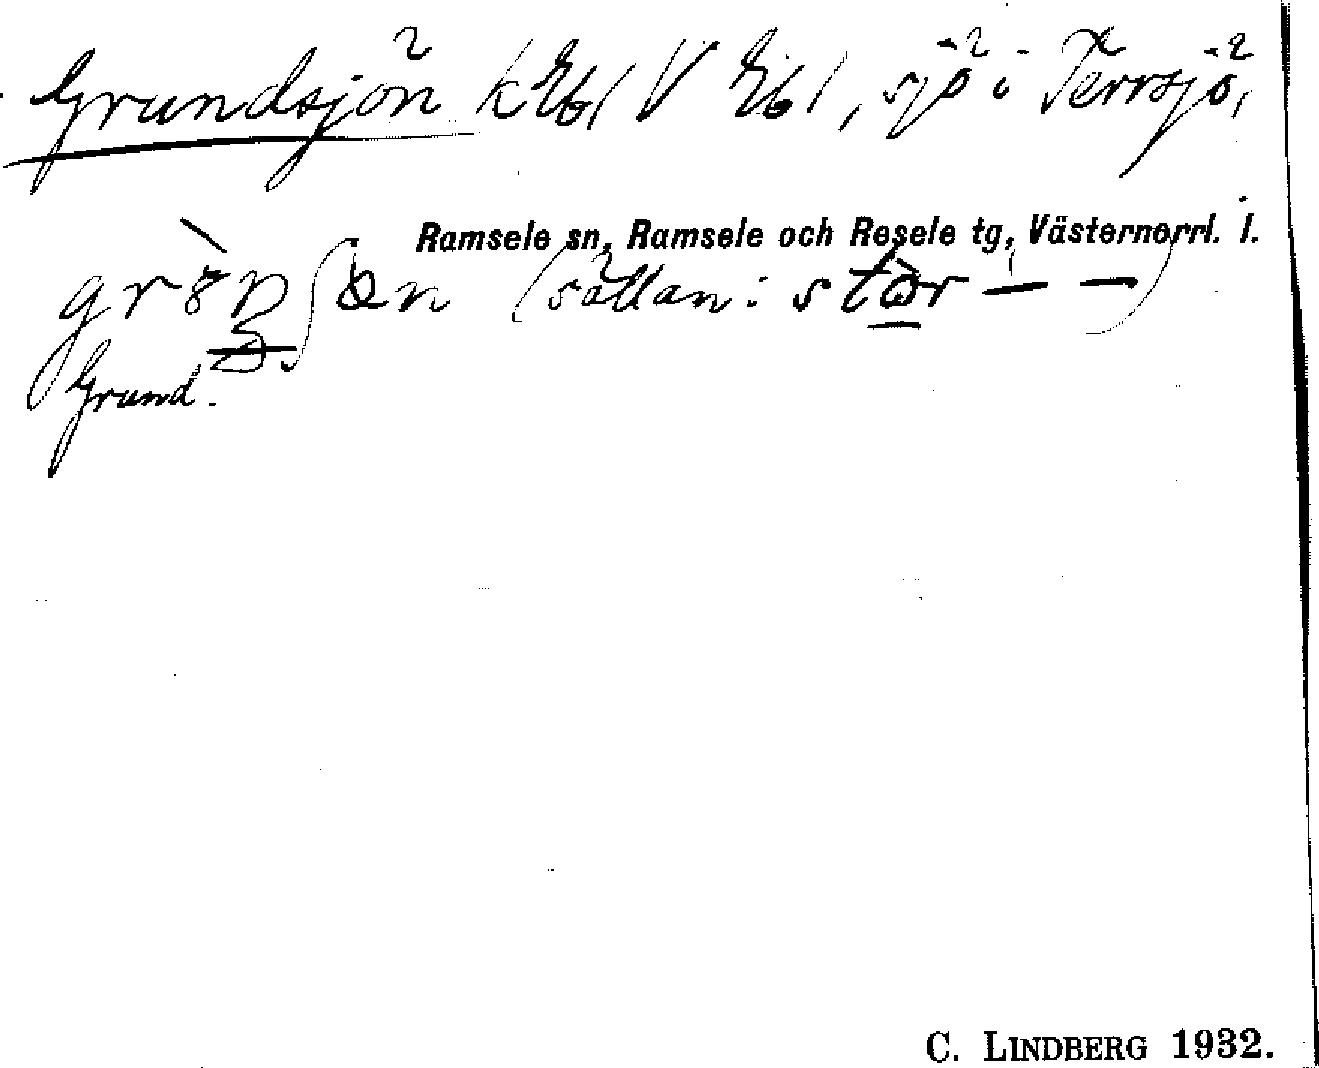 Grundsjön k Eb1 V Eb1, sjö i Terrsjö,
Ramsele sn, Ramsele och Resele tg, Västernorrl. l.
(sällan: stor — —)
Grund.
C. LINDBERG 1932.